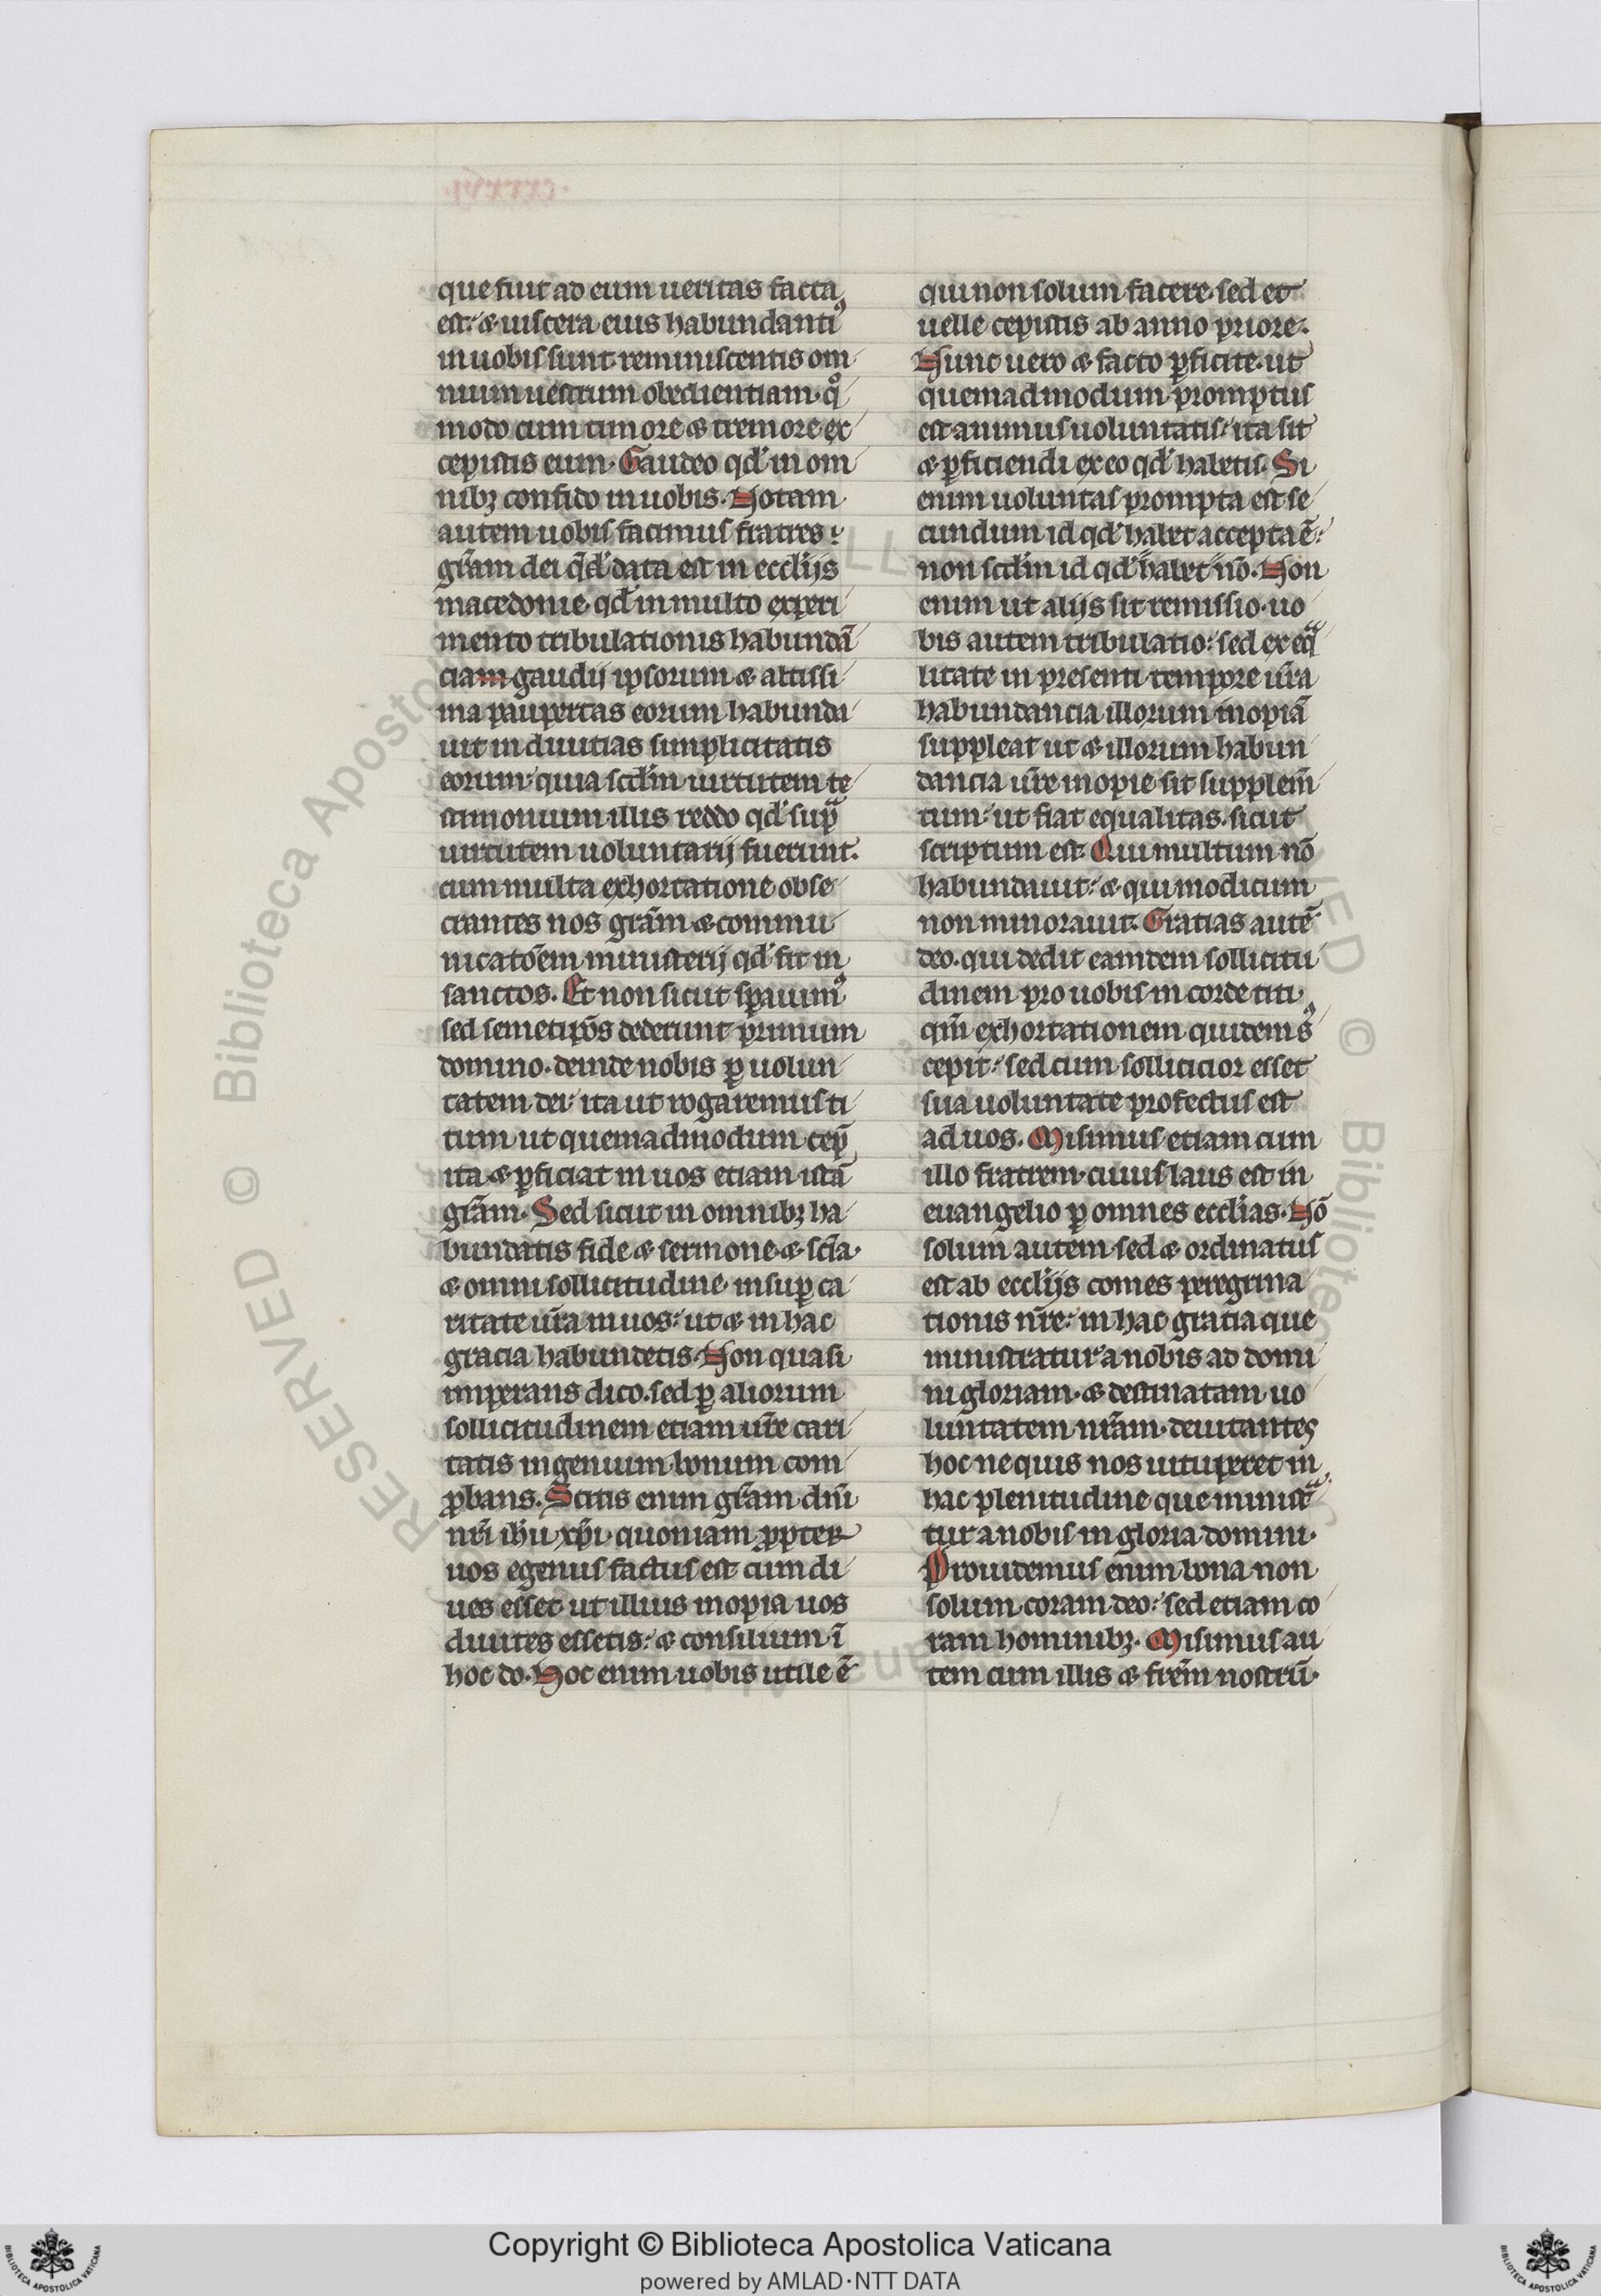 que fuit ad eum ueritas facta
est: ⁊ uiscera eius habundantiꝰ
in uobis sunt. reminiscentis om
nium uestrum obedientiam. qͦ
modo cum timore ⁊ tremore ex
cepistis eum. Gaudeo qd' in om
nibꝫ confido in uobis. Notam
autem uobis facimus fratres:
gr̄am dei q̄ data est in eccl'ijs
macedonie. qd' in multo experi
mento tribulationis habundā
ciam gaudij ipsorum ⁊ altissi
ma paupertas eorum habunda
uit in diuitias simplicitatis
eorum: quia scd'm uirtutem te
stimonium illis reddo qd' supᵃ
uirtutem uoluntarij fuerunt.
cum multa exhortatione obse
crantes nos gr̄am ⁊ commu
nicatōem ministerij qd' fit in
sanctos. Et non sicut sperauimꝰ
sed semetip̄os dederunt primum
domino. deinde nobis ꝑ uolun
tatem dei: ita ut rogaremus ti
tum ut quemadmodum cep̄
ita ⁊ ꝑficiat in uos etiam istā
gr̄am. Sed sicut in omnibꝫ ha
bundatis fide ⁊ sermone ⁊ sc̄ia.
⁊ omni sollicitudine. insuꝑ ca
ritate ur̄a in uos: ut ⁊ in hac
gracia habundetis. Non quasi
imperans dico. sed ꝑ aliorum
sollicitudinem etiam ur̄e cari
tatis ingenium bonum com
ꝓbans. Scitis enim gr̄am dn̄i
nr̄i ih̄u xp̄i. quoniam ꝓpter
uos egenus factus est cum di
ues esset ut illius inopia uos
diuites essetis: ⁊ consilium ī
hoc do. Hoc enim uobis utile ē
qui non solum facere. sed et
uelle cepistis ab anno priore.
Nunc uero ⁊ facto ꝑficite. ut
quemadmodum promptus
est animus uoluntatis: ita sit
⁊ ꝑficiendi ex eo qd' habetis. Si
enim uoluntas prompta est se
cundum id qd' habet accepta ē:
non scd'm id qd' habet nō. Non
enim ut alijs sit remissio. uo
bis autem tribulatio: sed ex eqᵃ
litate in presenti tempore ur̄a
habundancia illorum inopiā
suppleat ut ⁊ illorum habun
dancia ur̄e inopie sit supplem̄
tum: ut fiat equalitas. sicut
scriptum est. Qui multum nō
habundauit: ⁊ qui modicum
non minorauit. Gratias autē
deo. qui dedit eamdem sollicitu
dinem pro uobis in corde titi.
qm̄ exhortationem quidem sͧ
cepit: sed cum sollicicior esset
sua uoluntate profectus est
ad uos. Misimus etiam cum
illo fratrem. cuius laus est in
euangelio ꝑ omnes eccl'ias. Nō
solum autem. sed ⁊ ordinatus
est ab eccl'ijs comes peregrina
tionis nr̄e: in hac gratia que
ministratur a nobis ad domi
ni gloriam. ⁊ destinatam uo
luntatem nr̄am. deuitantes
hoc ne quis nos uituperet in
hac plenitudine que ministᵃ
tur a nobis in gloria domini.
Prouidemus enim bona non
solum coram deo: sed etiam co
ram hominibꝫ. Misimus au
tem cum illis ⁊ fr̄em nostrū.
Copyright © Biblioteca Apostolica Vaticana
powered by AMLAD·NTT DATA